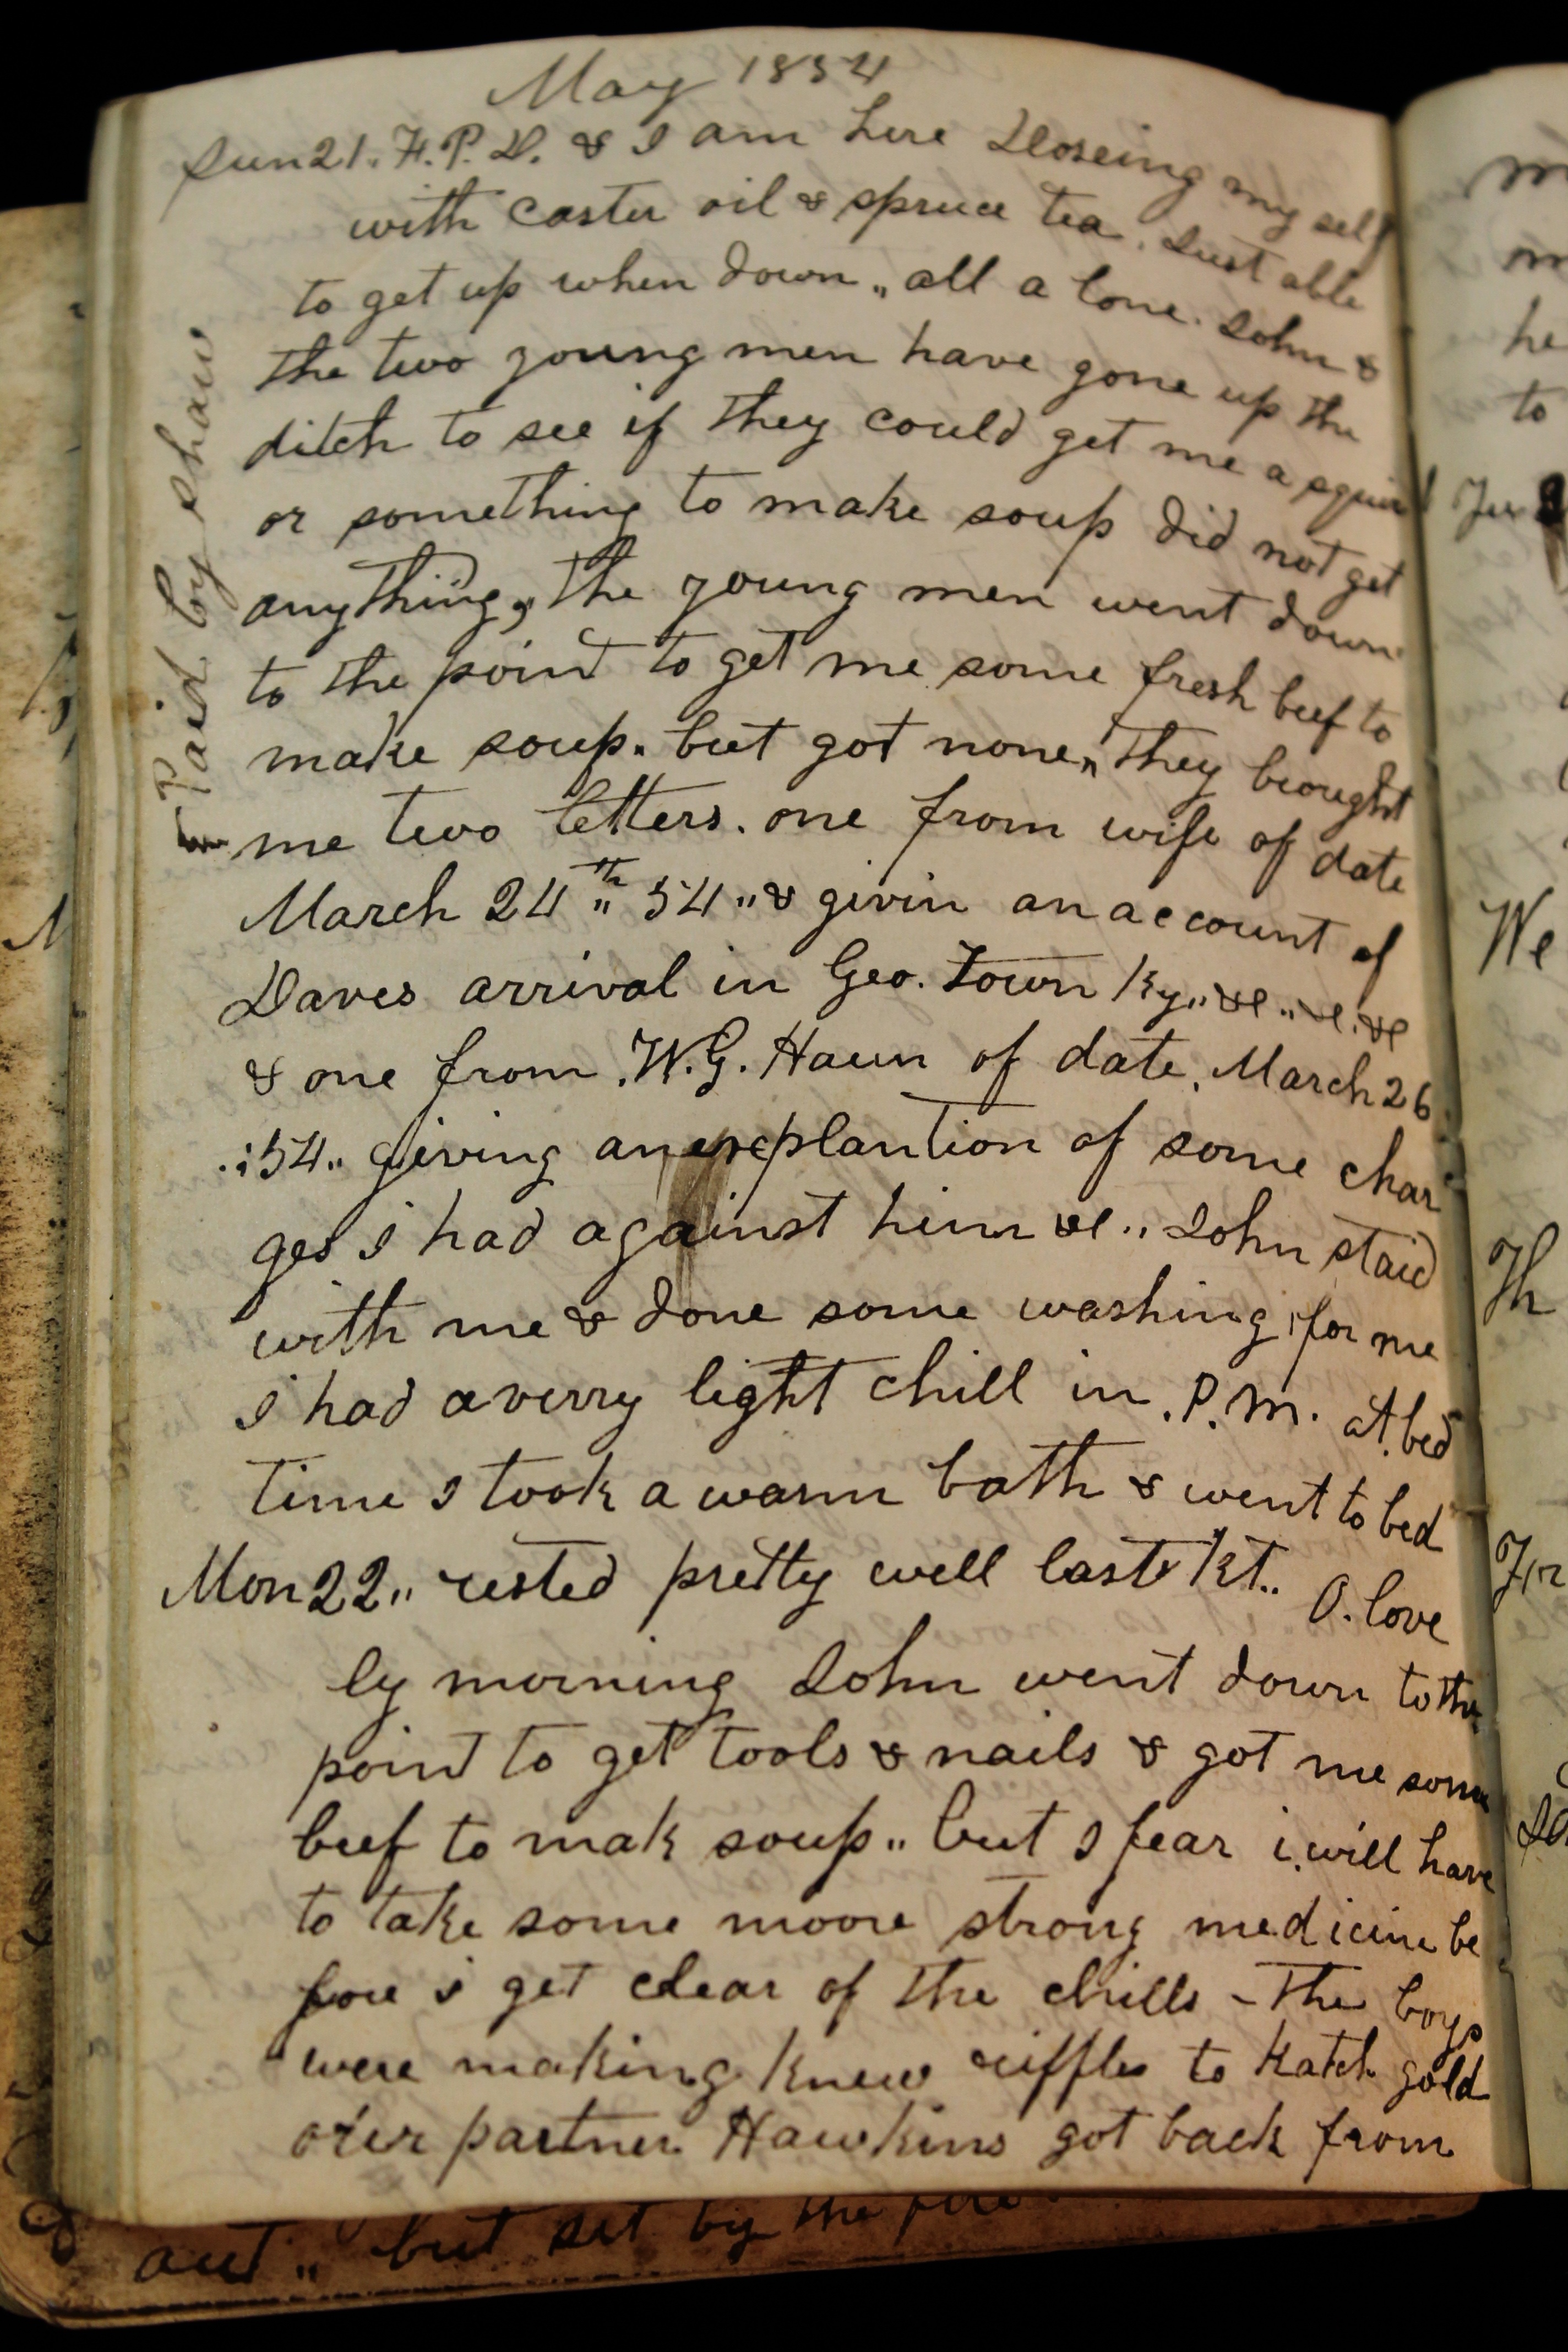 May 1854
Sun 21. H.P.D. & I am here Doseing my self
with caster oil & spruce tea. Just able
to get up when down „ all a lone. John &
the two young men have gone up the
ditch to see if they could get me a squirl
or something to make soup did not get
anything, the young men went down
to the point to get me some fresh beef to
make soup. but got none„ they brought
me two letters. one from wife of date
March 24th „ 54 „ & givin an account of
Daves arrival in Geo. Town Ky„ &c „ &c. &c
& one from W.G. Haun of date. March 26
54 „ giving an explantion of some char
ges I had against him &c „ John staid
with me & done some washing for me
I had a verry light chill in P.M. at bed
time I took a warm bath & went to bed
Mon 22 „ rested pretty well last kt „ O. love
ly morning John went down to the
point to get tools & nails & got me some
beef to mak soup „ but I fear i will have
to take some moore strong medicine be
fore i get clear of the chills - the boys
were making knew riffles to katch gold
over partner Hawkins got back from
Paid by Shaw
out „ but set by the fire
We
he
to
Th